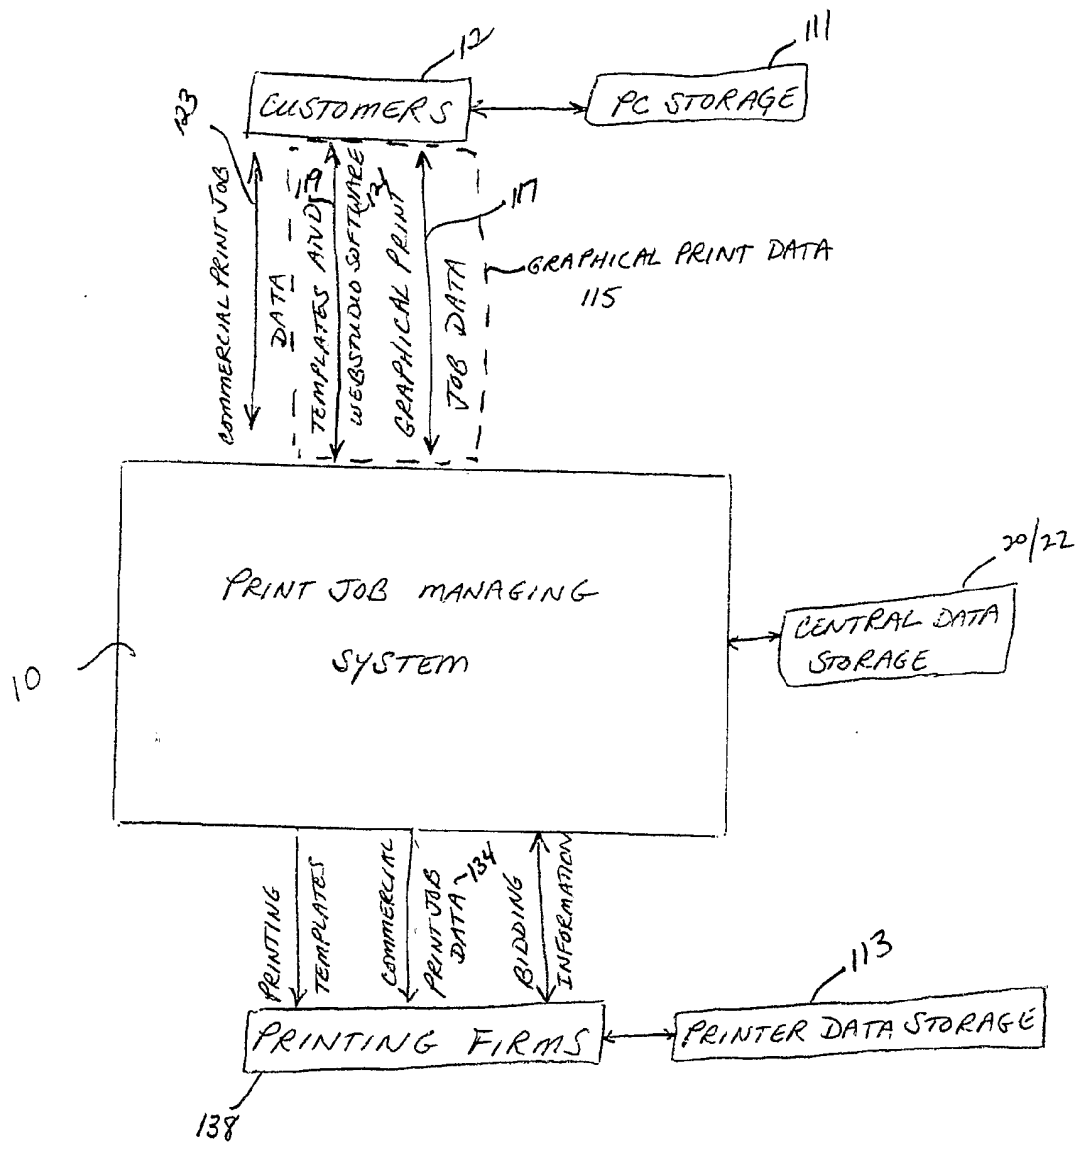 12
111
CUSTOMERS
PC STORAGE
123
COMMERCIAL PRINT JOB
DATA
119
TEMPLATES AND
WEBSTUDIO SOFTWARE
121
GRAPHICAL PRINT
JOB DATA
117
GRAPHICAL PRINT DATA
115
PRINT JOB MANAGING
SYSTEM
10
20/22
CENTRAL DATA
STORAGE
PRINTING
TEMPLATES
COMMERCIAL
PRINT JOB
DATA 134
BIDDING
INFORMATION
113
PRINTING FIRMS
PRINTER DATA STORAGE
138